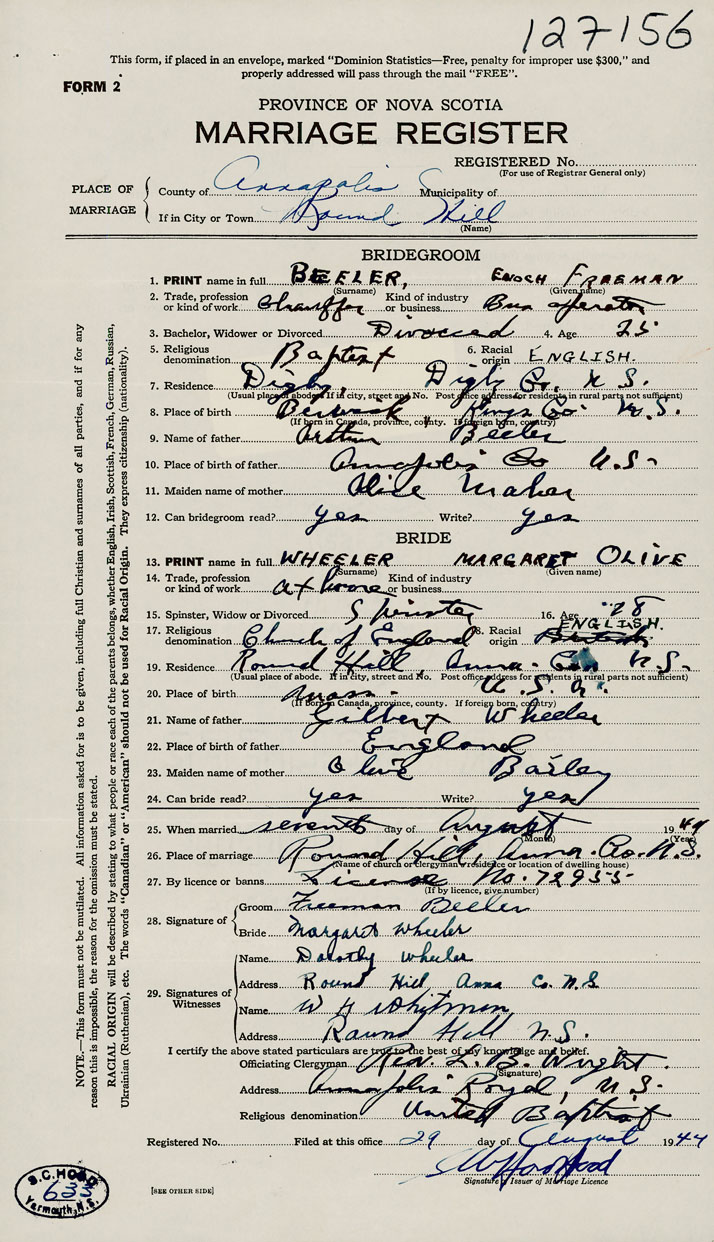 127156
This form, if placed in an envelope, marked "Dominion Statistics—Free, penalty for improper use $300," and
properly addressed will pass through the mail "FREE".
FORM 2
PROVINCE OF NOVA SCOTIA
MARRIAGE REGISTER
REGISTERED No.
(For use of Registrar General only)
PLACE OF MARRIAGE
County of Annapolis Municipality of
If in City or Town Round Hill
(Name)
BRIDEGROOM
1. PRINT name in full BEELER, ENOCH FREEMAN
(Surname) (Given name)
2. Trade, profession or kind of work Chauffer Kind of industry or business Bus operator
3. Bachelor, Widower or Divorced Divorced 4. Age 25
5. Religious denomination Baptist 6. Racial origin ENGLISH.
7. Residence Digby, Digby Co, N.S.
(Usual place of abode. If in city, street and No. Post office address for residents in rural parts not sufficient)
8. Place of birth Berwick Kings Co. N.S.
(If born in Canada, province, county. If foreign born, country)
9. Name of father Arthur Beeler
10. Place of birth of father Annapolis Co N.S.
11. Maiden name of mother Alice Maher
12. Can bridegroom read? yes Write? yes
BRIDE
13. PRINT name in full WHEELER MARGARET OLIVE
(Surname) (Given name)
14. Trade, profession or kind of work at home Kind of industry or business
15. Spinster, Widow or Divorced Spinster 16. Age 28
17. Religious denomination Church of England 18. Racial origin British ENGLISH.
19. Residence Round Hill, Anna. Co. N.S.
(Usual place of abode. If in city, street and No. Post office address for residents in rural parts not sufficient)
20. Place of birth Mass. U.S.A.
(If born in Canada, province, county. If foreign born, country)
21. Name of father Gilbert Wheeler
22. Place of birth of father England
23. Maiden name of mother Olive Bailey
24. Can bride read? yes Write? yes
25. When married seventh day of August 1944
(Month) (Year)
26. Place of marriage Round Hill, Anna. Co. N.S.
(Name of church or clergyman's residence or location of dwelling house)
27. By licence or banns License No. 72955
(If by licence, give number)
28. Signature of
Groom Freeman Beeler
Bride Margaret Wheeler
29. Signatures of Witnesses
Name Dorothy Wheeler
Address Round Hill, Anna Co. N.S
Name W H Whitman
Address Round Hill N.S.
I certify the above stated particulars are true to the best of my knowledge and belief.
Officiating Clergyman Rev. L. B. Wright.
(Signature)
Address Annapolis Royal, N.S.
Religious denomination United Baptist
Registered No. Filed at this office 29 day of August 1944
Signature of Issuer of Marriage Licence
[SEE OTHER SIDE]
633
Yarmouth, N.S.
NOTE.—This form must not be mutilated. All information asked for is to be given, including full Christian and surnames of all parties, and if for any
reason this is impossible, the reason for the omission must be stated.
RACIAL ORIGIN will be described by stating to what people or race each of the parents belongs, whether English, Irish, Scottish, French, German, Russian,
Ukrainian (Ruthenian), etc. The words "Canadian" or "American" should not be used for Racial Origin. They express citizenship (nationality).